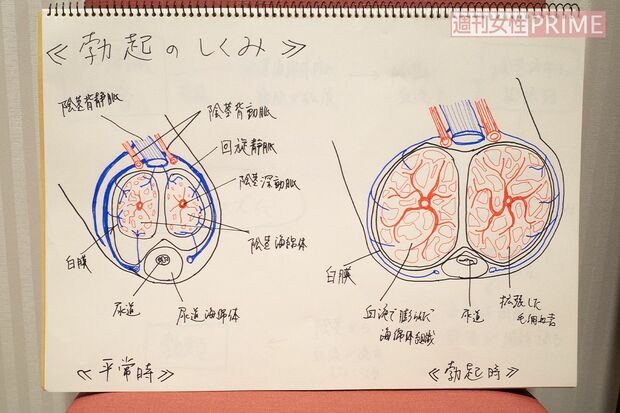 週刊女性PRIME
≪勃起のしくみ≫
陰茎背静脈
陰茎背動脈
回旋静脈
陰茎深動脈
陰茎海綿体
白膜
尿道
尿道海綿体
≪平常時≫
白膜
血液で膨らんだ
海綿体組織
尿道
拡張した
≪勃起時≫